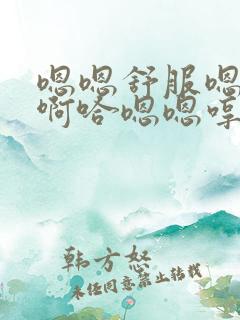 嗯嗯舒服嗯
啊哈嗯嗯哼
韩方怒
未经同意禁止转载